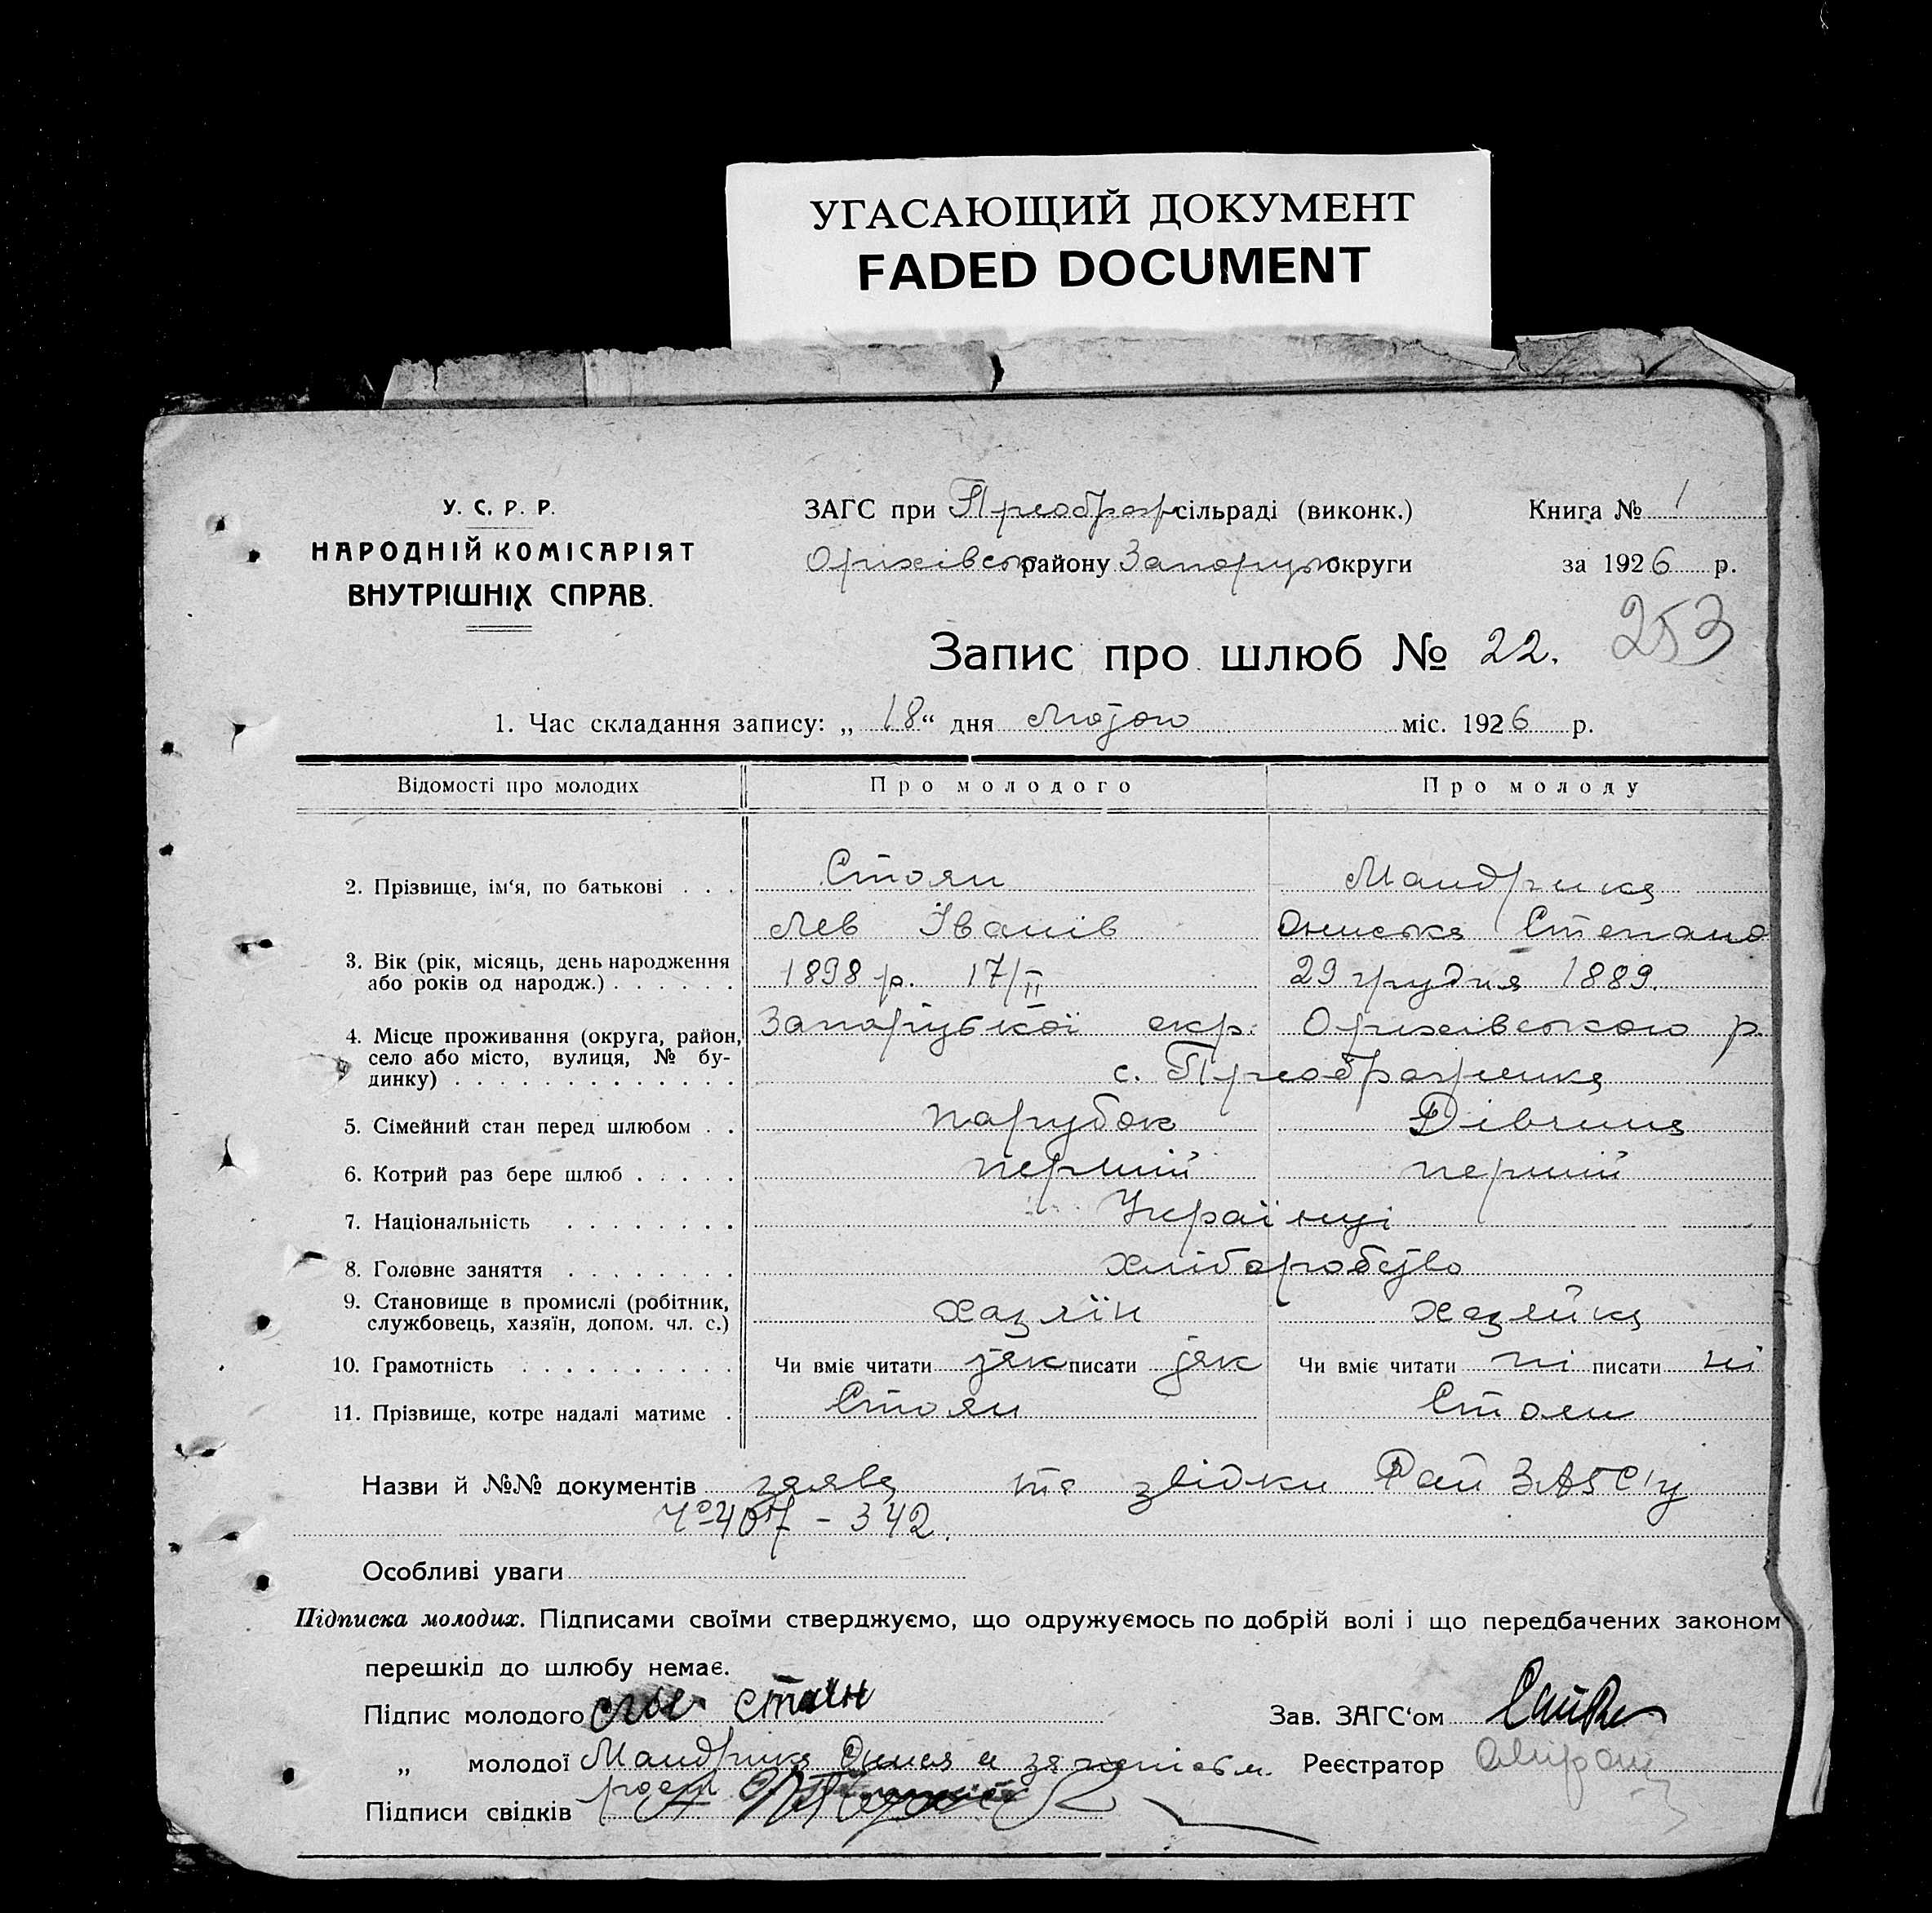 УГАСАЮЩИЙ ДОКУМЕНТ
FADED DOCUMENT
У. С. Р. Р.
НАРОДНІЙ КОМІСАРІЯТ
ВНУТРІШНІХ СПРАВ.
ЗАГС при Преображ сільраді (виконк.)
Оріхівсько району Запорізьк округи
Книга № 1
за 1926 р.
Запис про шлюб № 22.
253
1. Час складання запису: „ 18 “ дня Лютого міс. 1926 р.
Відомості про молодих Про молодого Про молоду
2. Прізвище, ім‘я, по батькові . . . Стоян Мандрика
Лев Іванів Ониська Степано
3. Вік (рік, місяць, день народження
або років од народж.) . . . . . . 1898 р. 17/II 29 грудня 1889.
4. Місце проживання (округа, район, Запорізької окр. Оріхівського р.
село або місто, вулиця, № бу-
динку) . . . . . . . . . . . . . с. Преображенка
5. Сімейний стан перед шлюбом . . парубок Дівчина
6. Котрий раз бере шлюб . . . . . перший перший
7. Національність . . . . . . . . Українці
8. Головне заняття . . . . . . . . хліборобство
9. Становище в промислі (робітник,
службовець, хазяїн, допом. чл. с.) хазяїн хазяйка
10. Грамотність . . . . . . . . . . Чи вміє читати так писати так Чи вміє читати ні писати ні
11. Прізвище, котре надалі матиме . Стоян Стоян
Назви й №№ документів заява та звідки Рай ЗАГС'у
№ 407 – 342.
Особливі уваги
Підписка молодих. Підписами своїми стверджуємо, що одружуємось по добрій волі і що передбачених законом
перешкід до шлюбу немає.
Підпис молодого Стоян
Зав. ЗАГС‘ом
„ молодої Мандрика
Реєстратор
Підписи свідків